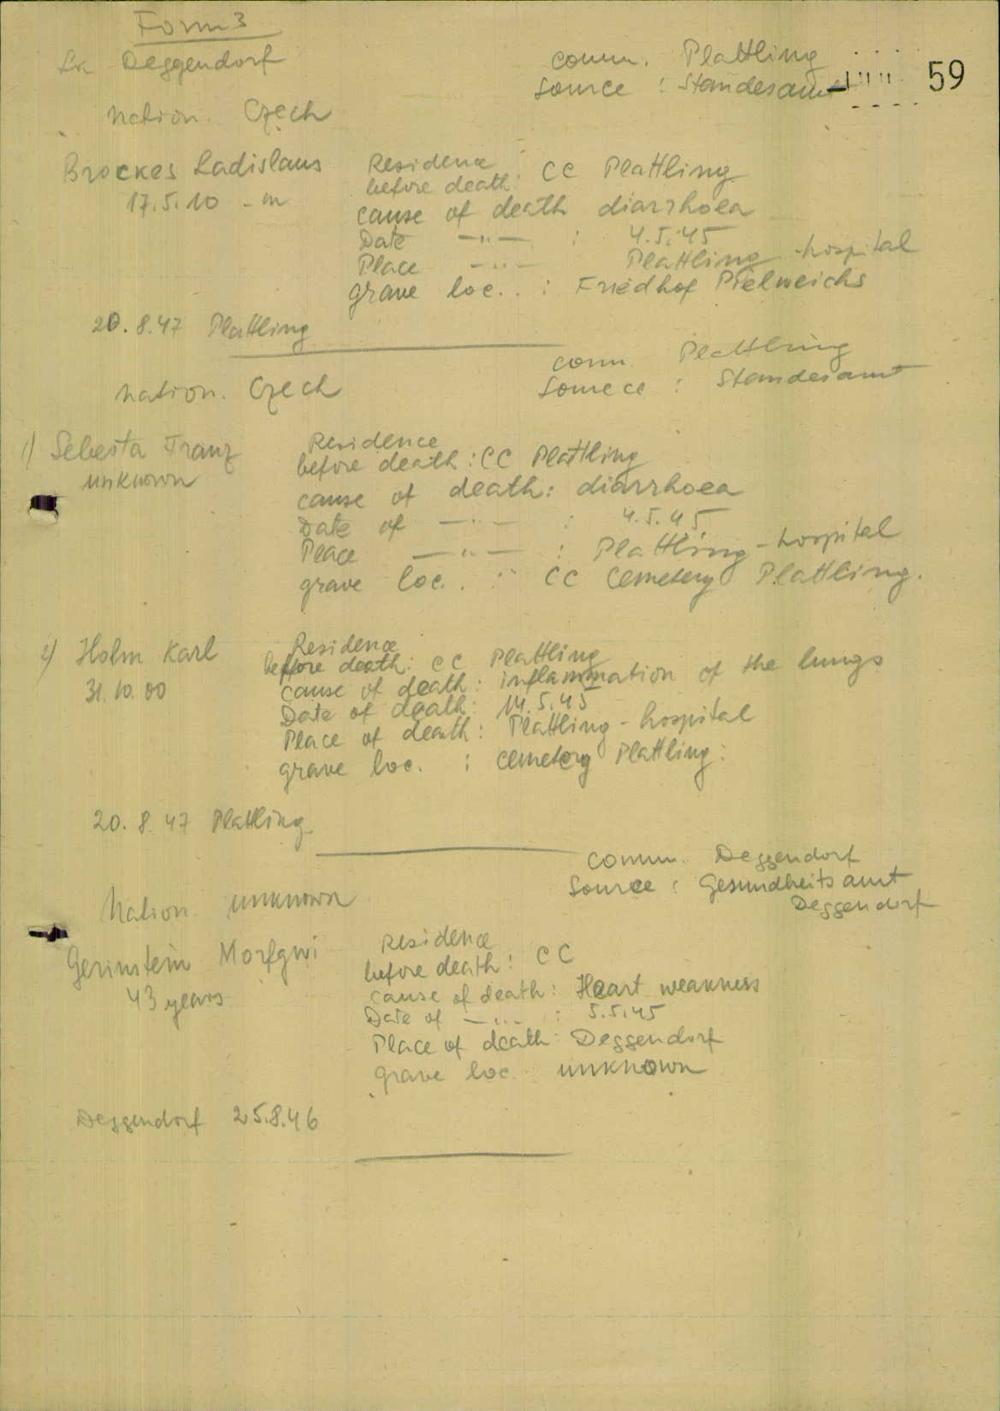 Form 3
Lk Deggendorf
comm. Plattling
Source : Standesamt
59
Nation. Czech
Brockes Ladislaus
17.5.10 - m
Residence
before death: CC Plattling
cause of death diarrhoea
Date —"— : 4.5.45
Place —"— Plattling - hospital
grave loc. : Friedhof Pielweichs
20.8.47 Plattling
comm. Plattling
Source : Standesamt
Nation. Czech
1) Sebesta Franz
unknown
Residence
before death : CC Plattling
cause of death: diarrhoea
Date of —"— : 4.5.45.
Place —"— : Plattling - hospital
grave loc. : CC Cemetery Plattling.
2) Holm Karl
31.10.00
Residence
before death: CC Plattling
cause of death: inflammation of the lungs
Date of death: 14.5.45
Place of death: Plattling - hospital
grave loc. : cemetery Plattling.
20.8.47 Plattling
comm. Deggendorf
Source : Gesundheitsamt
Deggendorf
Nation. unknown
Gerinstein Morfgwi
43 years
Residence
before death: CC
cause of death: Heart weakness
Date of —"— : 5.5.45
Place of death: Deggendorf
grave loc. unknown
Deggendorf 25.8.46